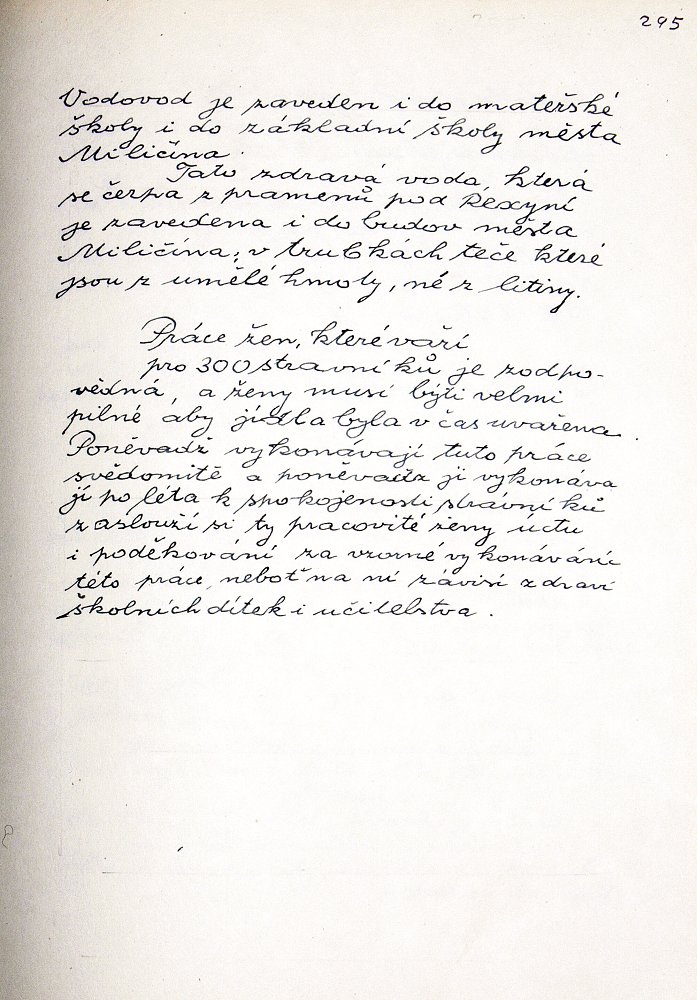 295
Vodovod je zaveden i do mateřské
školy i do základní školy města
Miličína.
Tato zdravá voda, která
se čerpá z pramenů pod Rexyní
je zavedena i do budov města
Miličína; v trubkách teče které
jsou z umělé hmoty, né z litiny.
Práce žen, které vaří
pro 300 stravníků je zodpo-
vědná, a ženy musí býti velmi
pilné aby jídla byla v čas uvařena.
Poněvadž vykonávají tuto práce
svědomitě a poněvadž ji vykonáva
jí po léta k spokojenosti strávníků
zaslouží si ty pracovité ženy úctu
i poděkování za vzorné vykonávání
této práce, neboť na ní závisí zdraví
školních dítek i učitelstva.